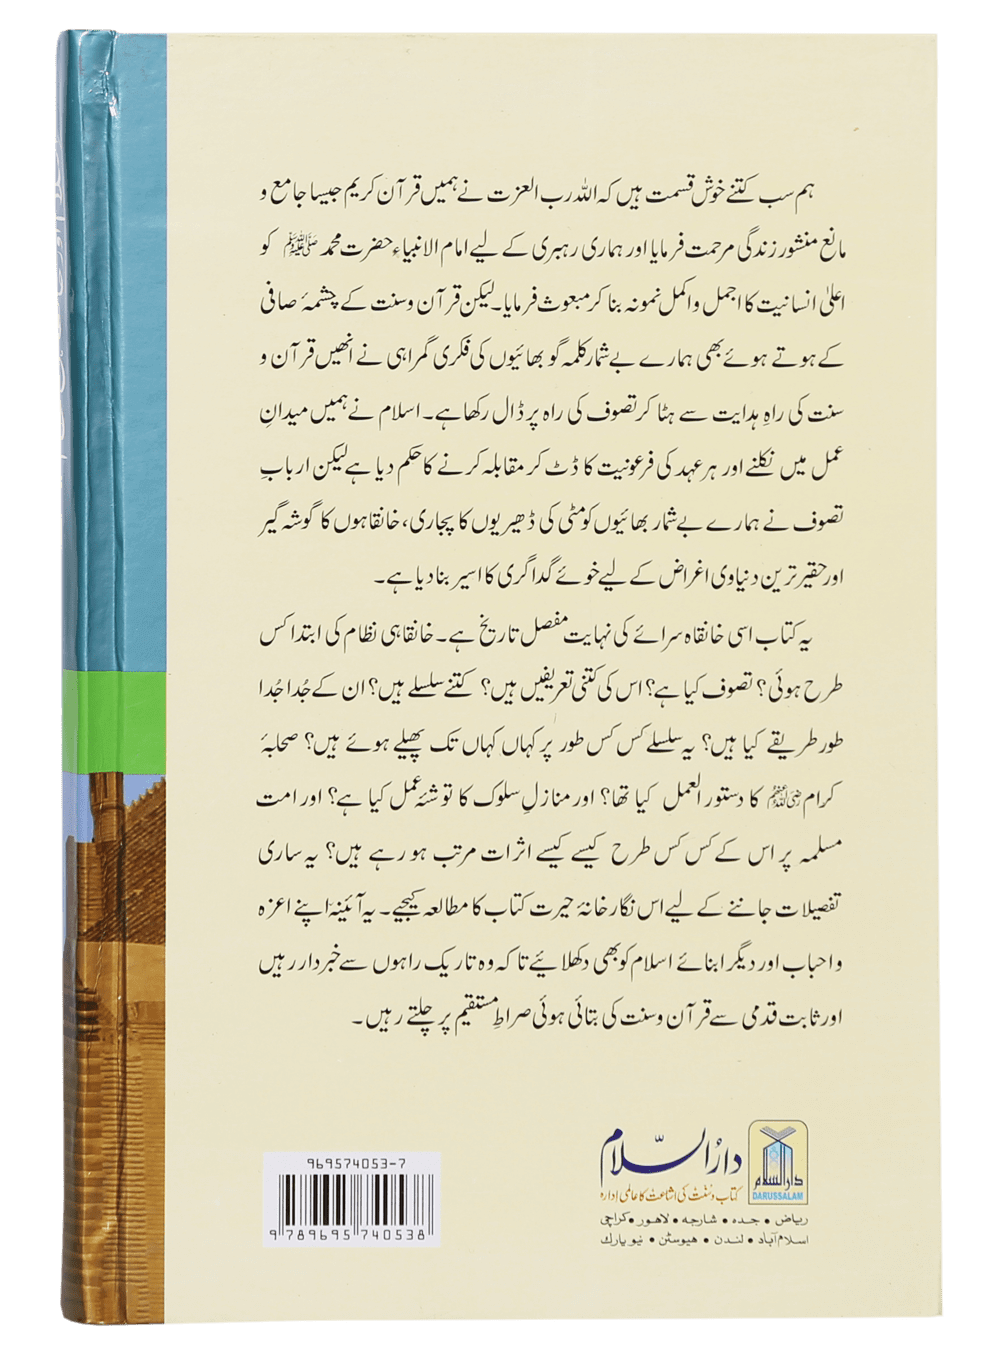 ہم سب کتنے خوش قسمت ہیں کہ اللہ رب العزت نے ہمیں قرآن کریم جیسا جامع و
مانع منشور زندگی مرحمت فرمایا اور ہماری رہبری کے لیے امام الانبیاء حضرت محمد ﷺ کو
اعلیٰ انسانیت کا اجمل و اکمل نمونہ بنا کر مبعوث فرمایا۔ لیکن قرآن و سنت کے چشمۂ صافی
کے ہوتے ہوئے بھی ہمارے بے شمار کلمہ گو بھائیوں کی فکری گمراہی نے انھیں قرآن و
سنت کی راہِ ہدایت سے ہٹا کر تصوف کی راہ پر ڈال رکھا ہے۔ اسلام نے ہمیں میدانِ
عمل میں نکلنے اور ہر عہد کی فرعونیت کا ڈٹ کر مقابلہ کرنے کا حکم دیا ہے لیکن اربابِ
تصوف نے ہمارے بے شمار بھائیوں کو مٹی کی ڈھیریوں کا پجاری، خانقاہوں کا گوشہ گیر
اور حقیر ترین دنیاوی اغراض کے لیے خوئے گداگری کا اسیر بنا دیا ہے۔
یہ کتاب اسی خانقاہ سرائے کی نہایت مفصل تاریخ ہے۔ خانقاہی نظام کی ابتدا کس
طرح ہوئی؟ تصوف کیا ہے؟ اس کی کتنی تعریفیں ہیں؟ کتنے سلسلے ہیں؟ ان کے جُدا جُدا
طور طریقے کیا ہیں؟ یہ سلسلے کس کس طور پر کہاں کہاں تک پھیلے ہوئے ہیں؟ صحابۂ
کرام رضی اللہ عنہم کا دستور العمل کیا تھا؟ اور منازلِ سلوک کا توشۂ عمل کیا ہے؟ اور امت
مسلمہ پر اس کے کس کس طرح کیسے کیسے اثرات مرتب ہو رہے ہیں؟ یہ ساری
تفصیلات جاننے کے لیے اس نگار خانۂ حیرت کتاب کا مطالعہ کیجیے۔ یہ آئینہ اپنے اعزہ
و احباب اور دیگر ابنائے اسلام کو بھی دکھلائیے تاکہ وہ تاریک راہوں سے خبردار رہیں
اور ثابت قدمی سے قرآن و سنت کی بتائی ہوئی صراطِ مستقیم پر چلتے رہیں۔
دارُالسّلام
کتاب و سنت کی اشاعت کا عالمی ادارہ
ریاض • جدہ • شارجہ • لاہور • کراچی
اسلام آباد • لندن • ہیوسٹن • نیو یارک
دارالسلام
DARUSSALAM
969574053-7
9 789695 740538